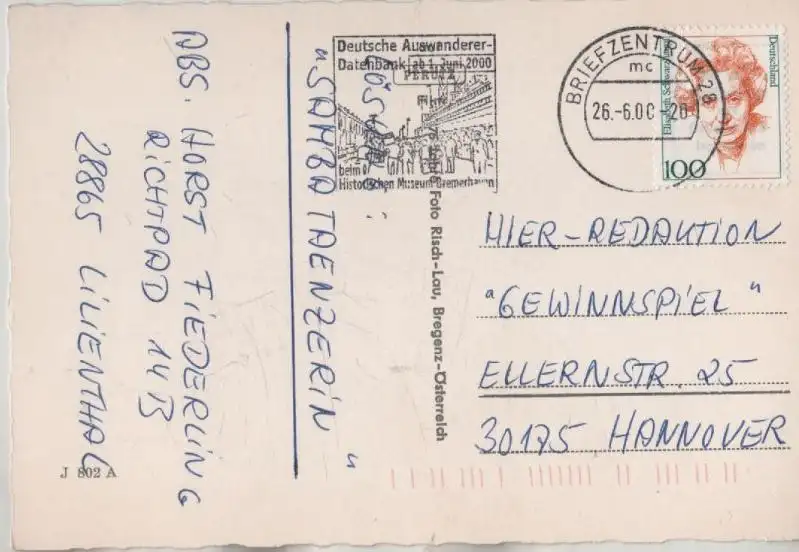 ABS. HORST FIEDERLING
RICHTPAD 14 B
28865 LILIENTHAL
J 802 A
LÖSUNG:
"SAMBA TAENZERIN"
Deutsche Auswanderer-
Datenbank ab 1. Juni 2000
PERUTZ
Film
beim
Historischen Museum Bremerhaven
Foto Risch-Lau, Bregenz-Österreich
BRIEFZENTRUM 28
mc
26.-6.00
21
Deutschland
Elisabeth Schwarz
100
HIER-REDAKTION
"GEWINNSPIEL"
ELLERNSTR. 25
30175 HANNOVER